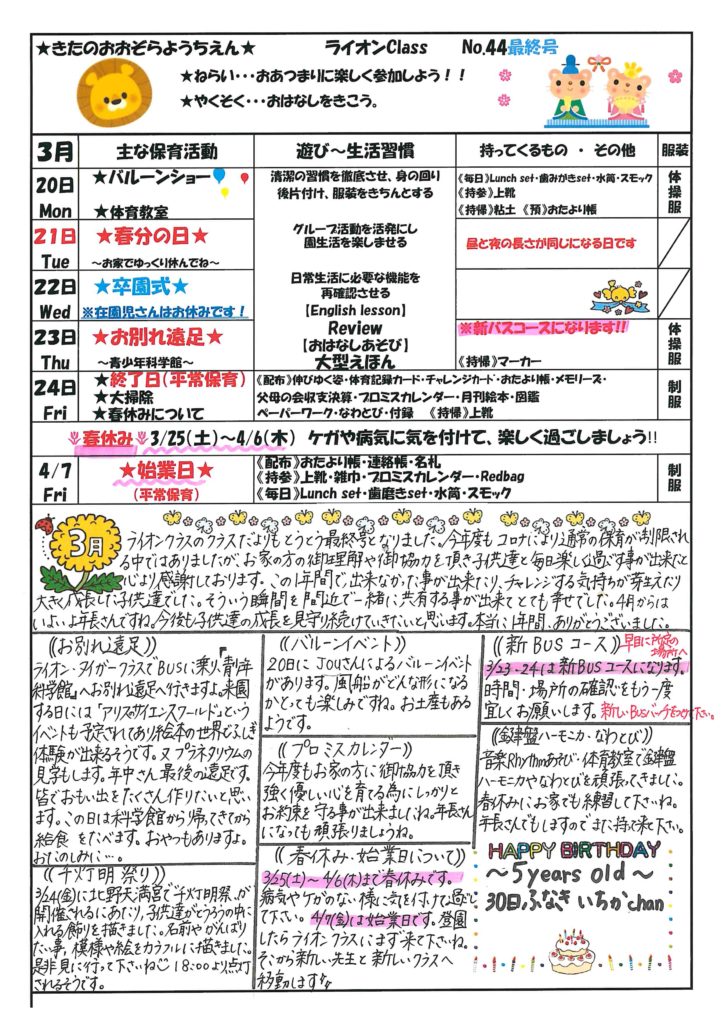 ★きたのおおぞらようちえん★ ライオンClass No.44最終号
★ねらい・・・おあつまりに楽しく参加しよう！！
★やくそく・・・おはなしをきこう。
3月 主な保育活動 遊び～生活習慣 持ってくるもの ・ その他 服装
20日 Mon
★バルーンショー
★体育教室
清潔の習慣を徹底させ、身の回り
後片付け、服装をきちんとする
《毎日》Lunch set・歯みがきset・水筒・スモック
《持参》上靴
《持帰》粘土 《預》おたより帳
体操服
21日 Tue
★春分の日★
～お家でゆっくり休んでね～
グループ活動を活発にし
園生活を楽しませる
昼と夜の長さが同じになる日です
22日 Wed
★卒園式★
※在園児さんはお休みです！
日常生活に必要な機能を
再確認させる
【English lesson】
23日 Thu
★お別れ遠足★
～青少年科学館～
Review
【おはなしあそび】
大型えほん
※新バスコースになります!!
《持帰》マーカー
体操服
24日 Fri
★終了日(平常保育)
★大掃除
★春休みについて
《配布》伸びゆく姿・体育記録カード・チャレンジカード・おたより帳・メモリーズ・
父母の会収支決算・プロミスカレンダー・月刊絵本・図鑑
ペーパーワーク・なわとび・付録 《持帰》上靴
制服
春休み 3/25(土)～4/6(木) ケガや病気に気を付けて、楽しく過ごしましょう!!
4/7 Fri
★始業日★
(平常保育)
《配布》おたより帳・連絡帳・名札
《持参》上靴・雑巾・プロミスカレンダー・Redbag
《毎日》Lunch set・歯磨きset・水筒・スモック
制服
3月
ライオンクラスのクラスだよりもとうとう最終号となりました。今年度もコロナにより通常の保育が制限され
る中ではありましたが、お家の方の御理解や御協力を頂き子供達と毎日楽しく過ごす事が出来たと
心より感謝しております。この1年間で出来なかった事が出来たり、チャレンジする気持ちが芽生えたり
大きく成長した子供達でした。そういう瞬間を間近で一緒に共有する事が出来てとても幸せでした。4月からは
いよいよ年長さんですね。今後も子供達の成長を見守り続けていきたいと思います。本当に1年間、ありがとうございました。
《お別れ遠足》
ライオン・タイガークラスでBUSに乗り、『青少年
科学館』へお別れ遠足へ行きますよ。来園
する日には「アリスのサイエンスワールド」という
イベントも予定されてあり絵本の世界でふしぎ
体験が出来るそうです。又プラネタリウムの
見学もします。年中さん最後の遠足です。
皆でおもい出をたくさん作りたいと思い
ます。この日は科学館から帰ってきてから
給食をたべます。おやつもありますよ。
おたのしみに…。
《千灯明祭り》
3/24(金)に北野天満宮で「千灯明祭」が
開催されるにあたり、子供達がとうろうの中に
入れる飾りを描きました。名前やがんばり
たい事、模様や絵をカラフルに描きました。
是非見に行って下さいね 18:00より点灯
されるそうです。
《バルーンイベント》
20日にJOUさんによるバルーンイベント
があります。風船がどんな形になる
かとっても楽しみですね。お土産もある
ようです。
《プロミスカレンダー》
今年度もお家の方に御協力を頂き
強く優しい心を育てる為にしっかりと
お約束を守る事が出来ましたね。年長さん
になっても頑張りましょうね。
《春休み・始業日について》
3/25(土)～4/6(木)まで春休みです。
病気やケガのない様に気を付けて過ごし
て下さい。4/7(金)は始業日です。登園
したらライオンクラスにまず来て下さいね。
そこから新しい先生と新しいクラスへ
移動します
《新BUSコース》 早目に所定の場所へ
3/23・24は新BUSコースになります。
時間・場所の確認をもう一度
宜しくお願いします。新しいBUSバッチをつけて下さい。
《鍵盤ハーモニカ・なわとび》
音楽Rhythmあそび・体育教室で鍵盤
ハーモニカやなわとびを頑張ってきました。
春休みにお家でも練習して下さいね。
年長さんでもしますのでまた持って来て下さい。
HAPPY BIRTHDAY
～5years old～
30日 ふなき いちか chan